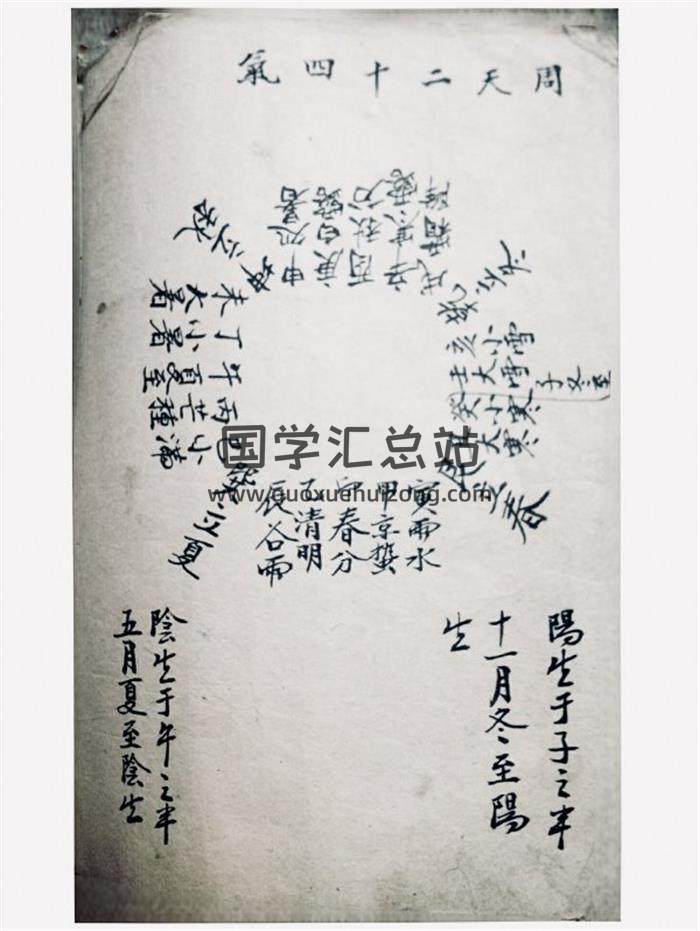 周天二十四氣
乾立冬
戌霜降
辛寒露
酉秋分
庚白露
申处暑
坤立秋
未大暑
丁小暑
午夏至
丙芒種
巳小滿
巽立夏
辰谷雨
乙清明
卯春分
甲京蟄
寅雨水
艮立春
丑大寒
癸小寒
子冬至
壬大雪
亥小雪
陽生于子之半
十一月冬至陽
生
陰生于午之半
五月夏至陰生
国学汇总站
www.guoxuehuizong.com